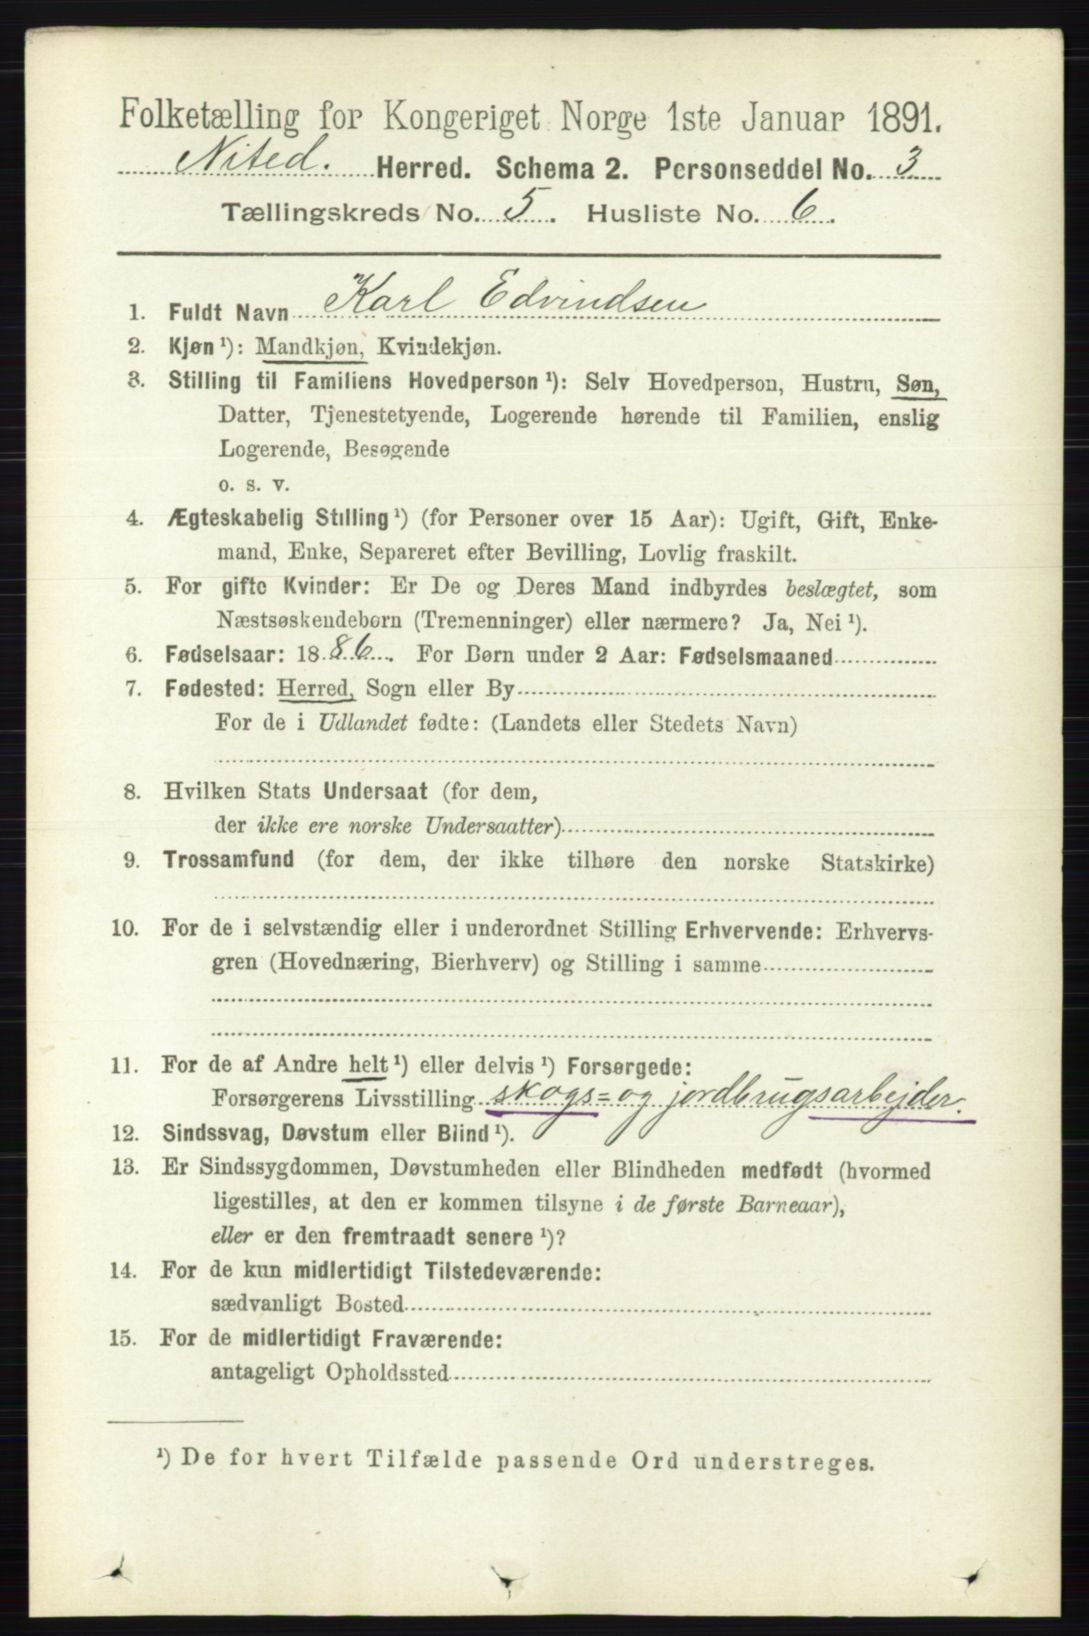 Folketælling for Kongeriget Norge 1ste Januar 1891.
Nited. Herred. Schema 2. Personseddel No. 3
Tællingskreds No. 5. Husliste No. 6.
1. Fuldt Navn Karl Edvindsen
2. Kjøn ¹): Mandkjøn, Kvindekjøn.
3. Stilling til Familiens Hovedperson ¹): Selv Hovedperson, Hustru, Søn,
Datter, Tjenestetyende, Logerende hørende til Familien, enslig
Logerende, Besøgende
o. s. v.
4. Ægteskabelig Stilling ¹) (for Personer over 15 Aar): Ugift, Gift, Enke-
mand, Enke, Separeret efter Bevilling, Lovlig fraskilt.
5. For gifte Kvinder: Er De og Deres Mand indbyrdes beslægtet, som
Næstsøskendebørn (Tremenninger) eller nærmere? Ja, Nei ¹).
6. Fødselsaar: 1886. For Børn under 2 Aar: Fødselsmaaned
7. Fødested: Herred, Sogn eller By
For de i Udlandet fødte: (Landets eller Stedets Navn)
8. Hvilken Stats Undersaat (for dem,
der ikke ere norske Undersaatter)
9. Trossamfund (for dem, der ikke tilhøre den norske Statskirke)
10. For de i selvstændig eller i underordnet Stilling Erhvervende: Erhvervs-
gren (Hovednæring, Bierhverv) og Stilling i samme
11. For de af Andre helt ¹) eller delvis ¹) Forsørgede:
Forsørgerens Livsstilling skogs= og jordbrugsarbejder.
12. Sindssvag, Døvstum eller Blind ¹).
13. Er Sindssygdommen, Døvstumheden eller Blindheden medfødt (hvormed
ligestilles, at den er kommen tilsyne i de første Barneaar),
eller er den fremtraadt senere ¹)?
14. For de kun midlertidigt Tilstedeværende:
sædvanligt Bosted
15. For de midlertidigt Fraværende:
antageligt Opholdssted
¹) De for hvert Tilfælde passende Ord understreges.